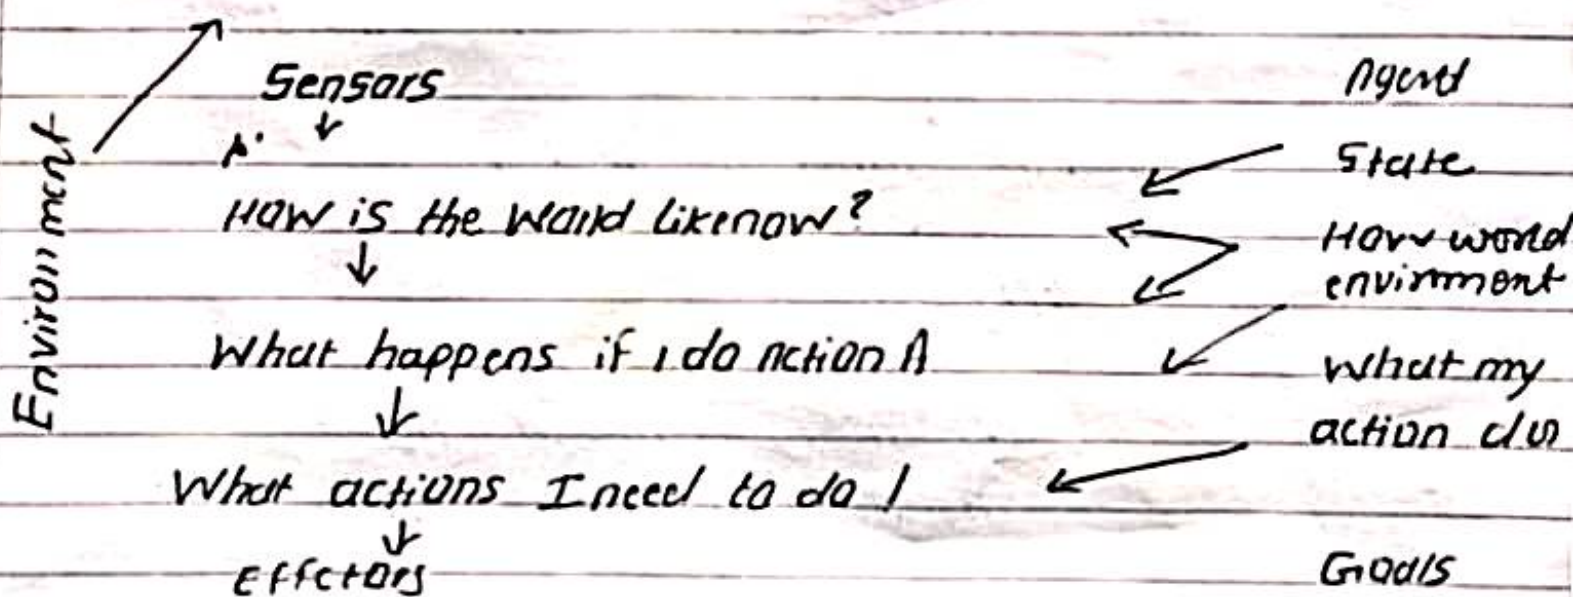 Environment
Sensors
How is the world like now?
What happens if I do action A
What actions I need to do
Effctors
Agent
State
How world
envirnment
what my
action
Goals